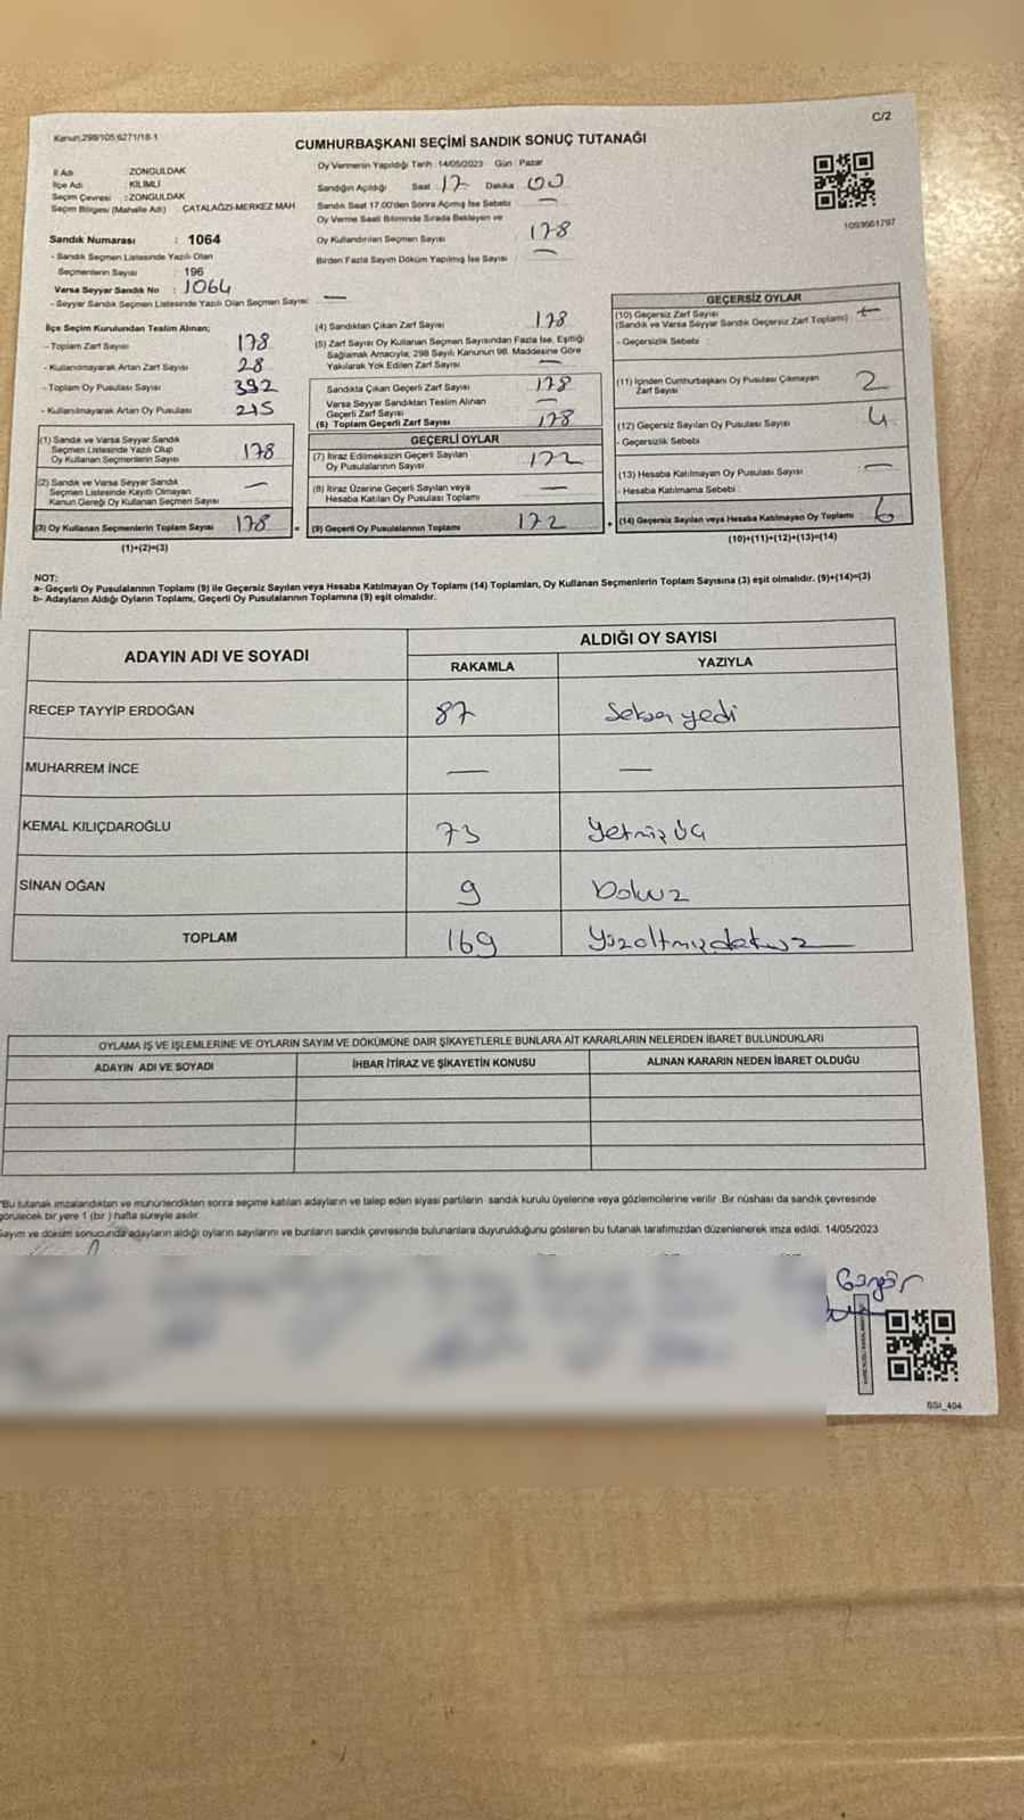 C/2
Kanun:298/105;6271/18-1
CUMHURBAŞKANI SEÇİMİ SANDIK SONUÇ TUTANAĞI
İl Adı : ZONGULDAK
İlçe Adı : KİLİMLİ
Seçim Çevresi : ZONGULDAK
Seçim Bölgesi (Mahalle Adı) : ÇATALAĞZI-MERKEZ MAH
Sandık Numarası : 1064
- Sandık Seçmen Listesinde Yazılı Olan
Seçmenlerin Sayısı : 196
Varsa Seyyar Sandık No : 1064
- Seyyar Sandık Seçmen Listesinde Yazılı Olan Seçmen Sayısı: —
Oy Vermenin Yapıldığı Tarih :14/05/2023 Gün : Pazar
Sandığın Açıldığı Saat : 17 Dakika : 00
Sandık Saat 17.00'den Sonra Açılmış İse Sebebi —
Oy Verme Saati Bitiminde Sırada Bekleyen ve
Oy Kullandırılan Seçmen Sayısı 178
Birden Fazla Sayım Döküm Yapılmış İse Sayısı —
1093661797
İlçe Seçim Kurulundan Teslim Alınan;
- Toplam Zarf Sayısı 178
- Kullanılmayarak Artan Zarf Sayısı 28
- Toplam Oy Pusulası Sayısı 392
- Kullanılmayarak Artan Oy Pusulası 215
(1) Sandık ve Varsa Seyyar Sandık
Seçmen Listesinde Yazılı Olup
Oy Kullanan Seçmenlerin Sayısı 178
(2) Sandık ve Varsa Seyyar Sandık
Seçmen Listesinde Kayıtlı Olmayan
Kanun Gereği Oy Kullanan Seçmen Sayısı —
(3) Oy Kullanan Seçmenlerin Toplam Sayısı 178
(1)+(2)=(3)
(4) Sandıktan Çıkan Zarf Sayısı 178
(5) Zarf Sayısı Oy Kullanan Seçmen Sayısından Fazla İse, Eşitliği
Sağlamak Amacıyla; 298 Sayılı Kanunun 98. Maddesine Göre
Yakılarak Yok Edilen Zarf Sayısı —
Sandıkta Çıkan Geçerli Zarf Sayısı 178
Varsa Seyyar Sandıktan Teslim Alınan
Geçerli Zarf Sayısı —
(6) Toplam Geçerli Zarf Sayısı 178
GEÇERLİ OYLAR
(7) İtiraz Edilmeksizin Geçerli Sayılan
Oy Pusulalarının Sayısı 172
(8) İtiraz Üzerine Geçerli Sayılan veya
Hesaba Katılan Oy Pusulası Toplamı —
(9) Geçerli Oy Pusulalarının Toplamı 172
GEÇERSİZ OYLAR
(10) Geçersiz Zarf Sayısı
(Sandık ve Varsa Seyyar Sandık Geçersiz Zarf Toplamı)
- Geçersizlik Sebebi :
(11) İçinden Cumhurbaşkanı Oy Pusulası Çıkmayan
Zarf Sayısı 2
(12) Geçersiz Sayılan Oy Pusulası Sayısı 4
- Geçersizlik Sebebi
(13) Hesaba Katılmayan Oy Pusulası Sayısı —
- Hesaba Katılmama Sebebi :
(14) Geçersiz Sayılan veya Hesaba Katılmayan Oy Toplamı 6
(10)+(11)+(12)+(13)=(14)
NOT:
a- Geçerli Oy Pusulalarının Toplamı (9) ile Geçersiz Sayılan veya Hesaba Katılmayan Oy Toplamı (14) Toplamları, Oy Kullanan Seçmenlerin Toplam Sayısına (3) eşit olmalıdır. (9)+(14)=(3)
b- Adayların Aldığı Oyların Toplamı, Geçerli Oy Pusulalarının Toplamına (9) eşit olmalıdır.
ADAYIN ADI VE SOYADI
ALDIĞI OY SAYISI
RAKAMLA YAZIYLA
RECEP TAYYİP ERDOĞAN 87 Seksen yedi
MUHARREM İNCE — —
KEMAL KILIÇDAROĞLU 73 Yetmiş üç
SİNAN OĞAN 9 Dokuz
TOPLAM 169 Yüzaltmışdokuz
OYLAMA İŞ VE İŞLEMLERİNE VE OYLARIN SAYIM VE DÖKÜMÜNE DAİR ŞİKAYETLERLE BUNLARA AİT KARARLARIN NELERDEN İBARET BULUNDUKLARI
ADAYIN ADI VE SOYADI İHBAR İTİRAZ VE ŞİKAYETİN KONUSU ALINAN KARARIN NEDEN İBARET OLDUĞU
"Bu tutanak imzalandıktan ve mühürlendikten sonra seçime katılan adayların ve talep eden siyasi partilerin sandık kurulu üyelerine veya gözlemcilerine verilir. Bir nüshası da sandık çevresinde
görülecek bir yere 1 (bir) hafta süreyle asılır.
Sayım ve döküm sonucunda adayların aldığı oyların sayılarını ve bunların sandık çevresinde bulunanlara duyurulduğunu gösteren bu tutanak tarafımızdan düzenlenerek imza edildi. 14/05/2023